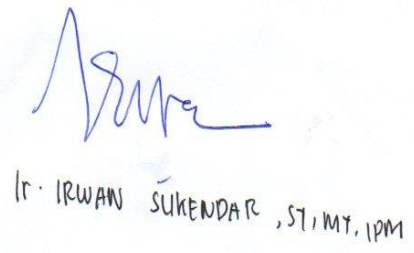 Ir. IRWAN SUKENDAR, ST, MT, IPM